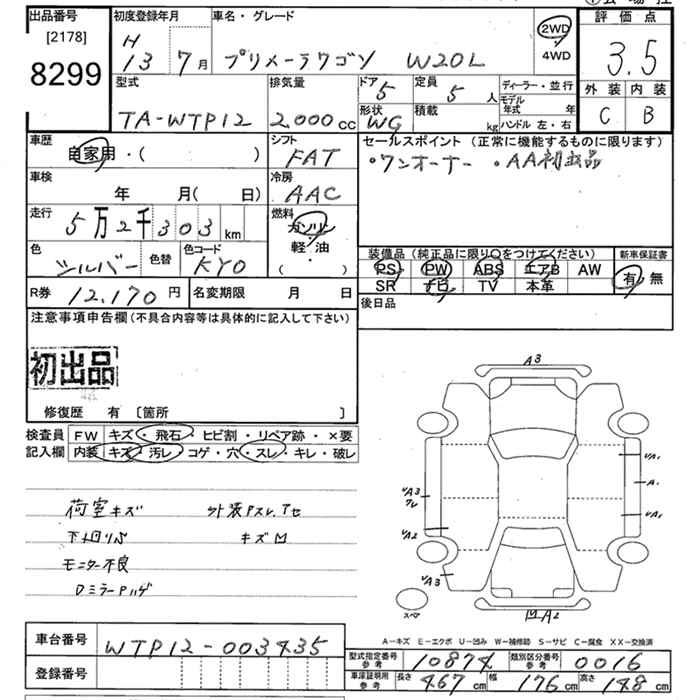 出品番号 初度登録年月 車名・グレード 2WD 評価点
[2178] H 4WD
8299 13 7月 プリメーラワゴン W20L 3.5
型式 排気量 ドア 定員 ディーラー・並行 外装 内装
TA-WTP12 2,000cc 5 5人 モデル年式 年 C B
形状 積載 ハンドル 左・右
WG kg
車歴 シフト セールスポイント (正常に機能するものに限ります)
自家用・( ) FAT ・ワンオーナー ・AA初出品
車検 冷房
年 月( 日) AAC
走行 燃料
5万2千303km ガソリン
色 色替 色コード 軽・油 装備品 (純正品に限り○をつけてください) 新車保証書
シルバー KY0 ( ) PS PW ABS エアB AW 有・無
R券 12,170円 名変期限 月 日 SR ナビ TV 本革
注意事項申告欄(不具合内容等は具体的に記入して下さい) 後日品
初出品
修復歴 有 [箇所 ]
検査員 FW キズ・飛石・ヒビ割・リペア跡・×要
記入欄 内装 キズ・汚レ・コゲ・穴・スレ・キレ・破レ
荷室キズ 外装Pスレ、アセ
下廻りサビ キズ凹
モニター不良
DミラーPハゲ
A3
UA1
A1
UA3
UA1
UA2
UA3
スペア
凹A2
A-キズ E-エクボ U-凹み W-補修跡 S-サビ C-腐食 XX-交換済
車台番号 WTP12-003435 型式指定番号 参考 10874 類別区分番号 参考 0016
登録番号 車庫証明用 参考 長さ 467cm 幅 176cm 高さ 148cm